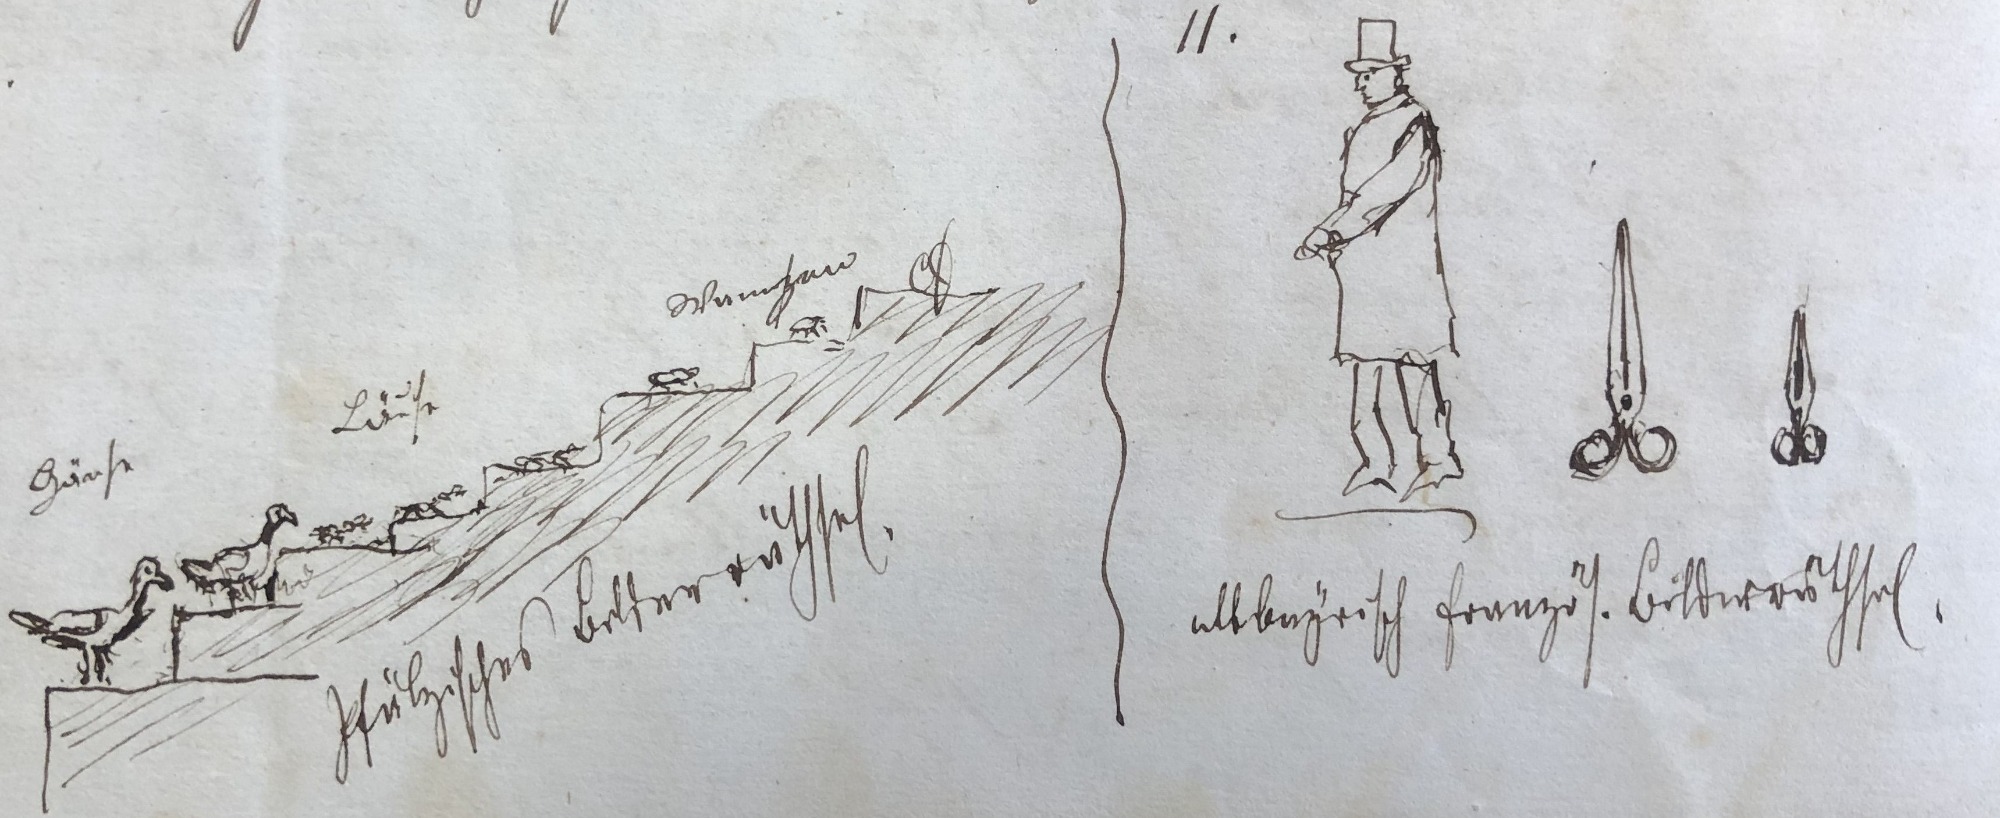 Gänse
Läuse
Wanzen
Pfälzisches Bilderräthsel.
11.
altbayrisch französ. Bilderräthsel.